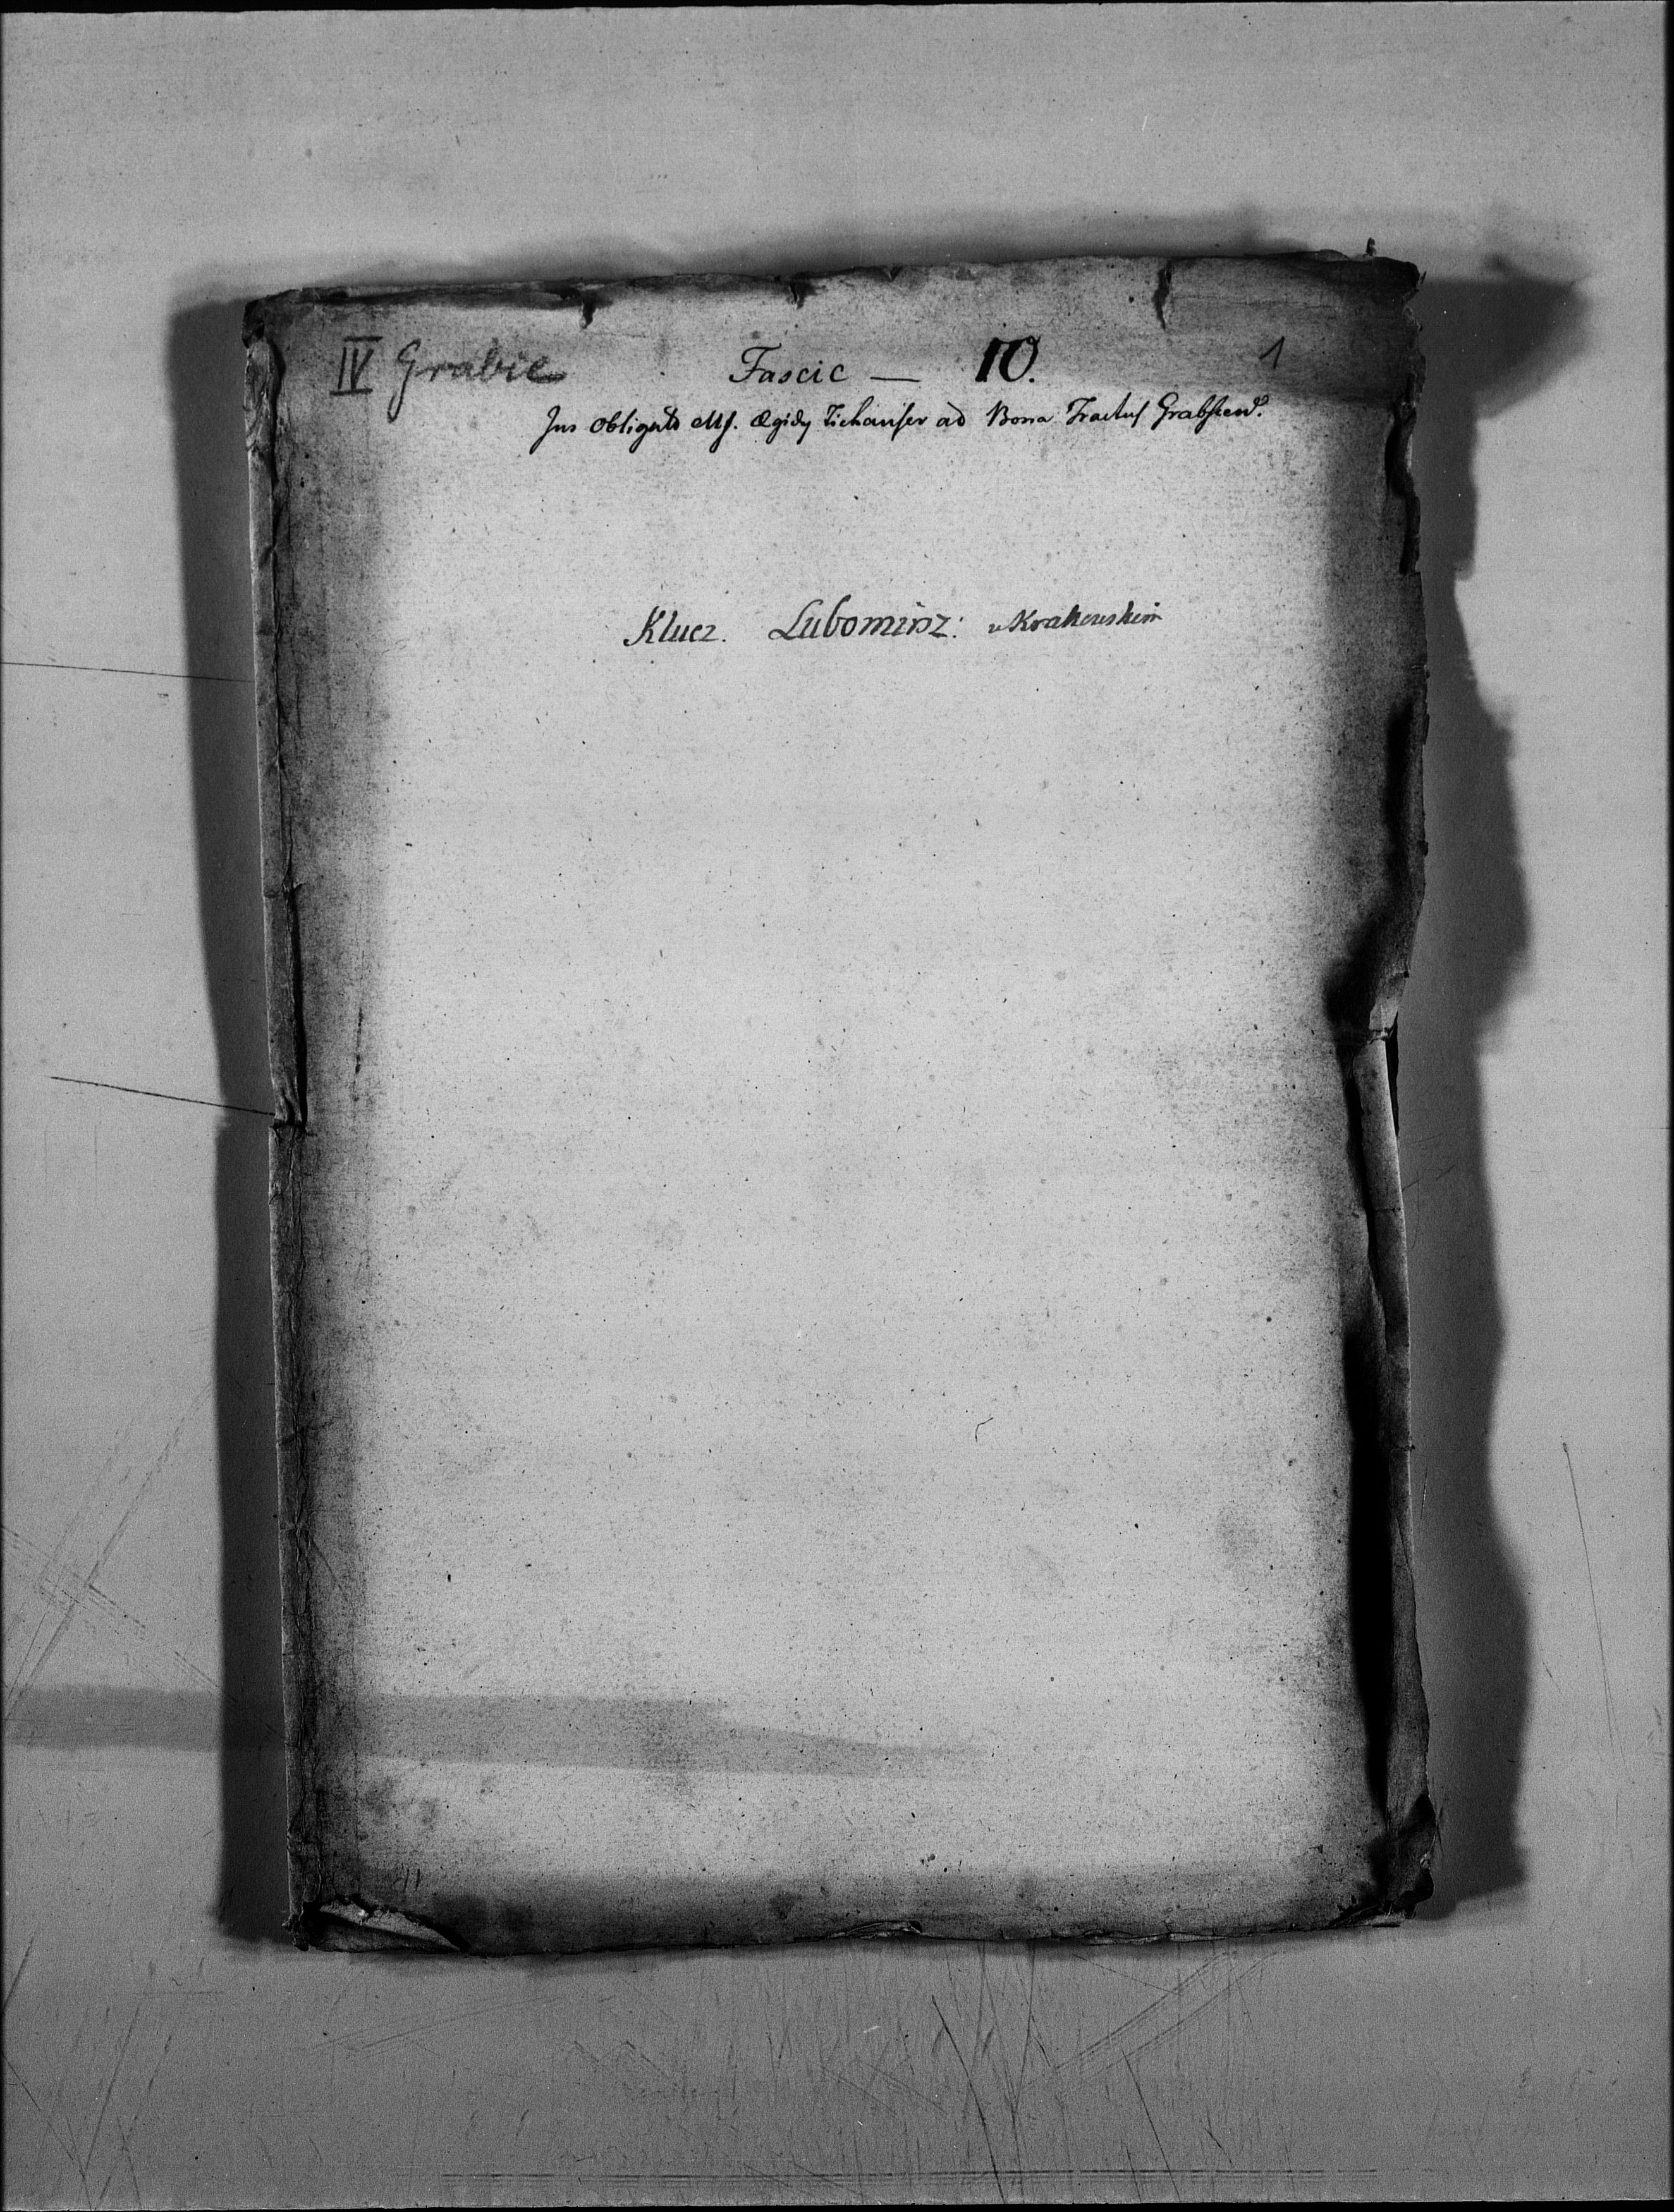 IV Grabie Fascic — 10. 1
Jus obligato Mf. Ægidy Tichauser ad Bona Tractus Grabscen.
Klucz. Lubomirz: w Krakowskim